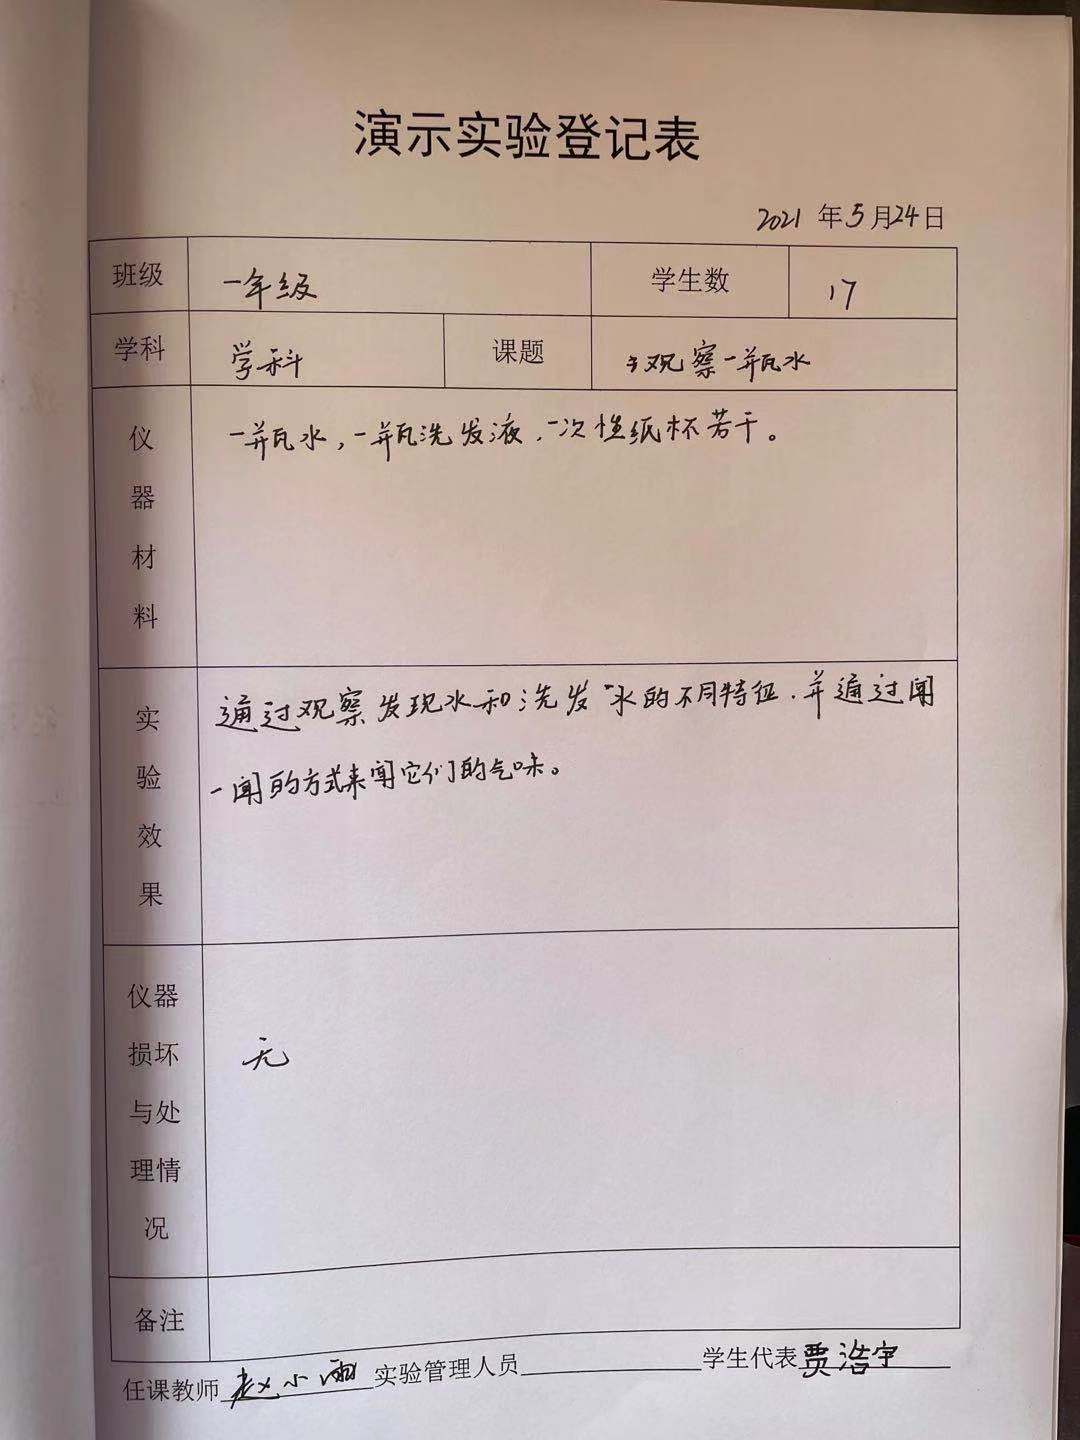 演示实验登记表
2021 年 5 月 24 日
班级 一年级 学生数 17
学科 学科 课题 观察一瓶水
仪器材料 一瓶水，一瓶洗发液，一次性纸杯若干。
实验效果 通过观察发现水和洗发水的不同特征，并通过闻
一闻的方式来闻它们的气味。
仪器损坏与处理情况 无
备注
任课教师 赵小雨 实验管理人员 学生代表 贾浩宇